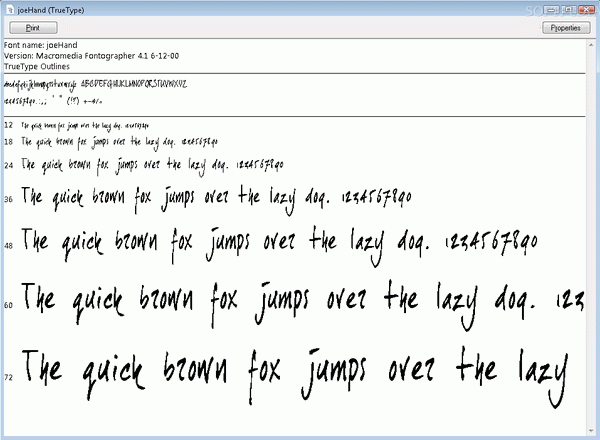 joeHand (TrueType)
Print
Properties
Font name: joeHand
Version: Macromedia Fontographer 4.1 6-12-00
TrueType Outlines
abcdefghijklmnopqrstuvwxyz ABCDEFGHIJKLMNOPQRSTUVWXYZ
1234567890.:,; ' " (!?) +-*/=
12 The quick brown fox jumps over the lazy dog. 1234567890
18 The quick brown fox jumps over the lazy dog. 1234567890
24 The quick brown fox jumps over the lazy dog. 1234567890
36 The quick brown fox jumps over the lazy dog. 1234567890
48 The quick brown fox jumps over the lazy dog. 1234567890
60 The quick brown fox jumps over the lazy dog. 123
72 The quick brown fox jumps over the lazy